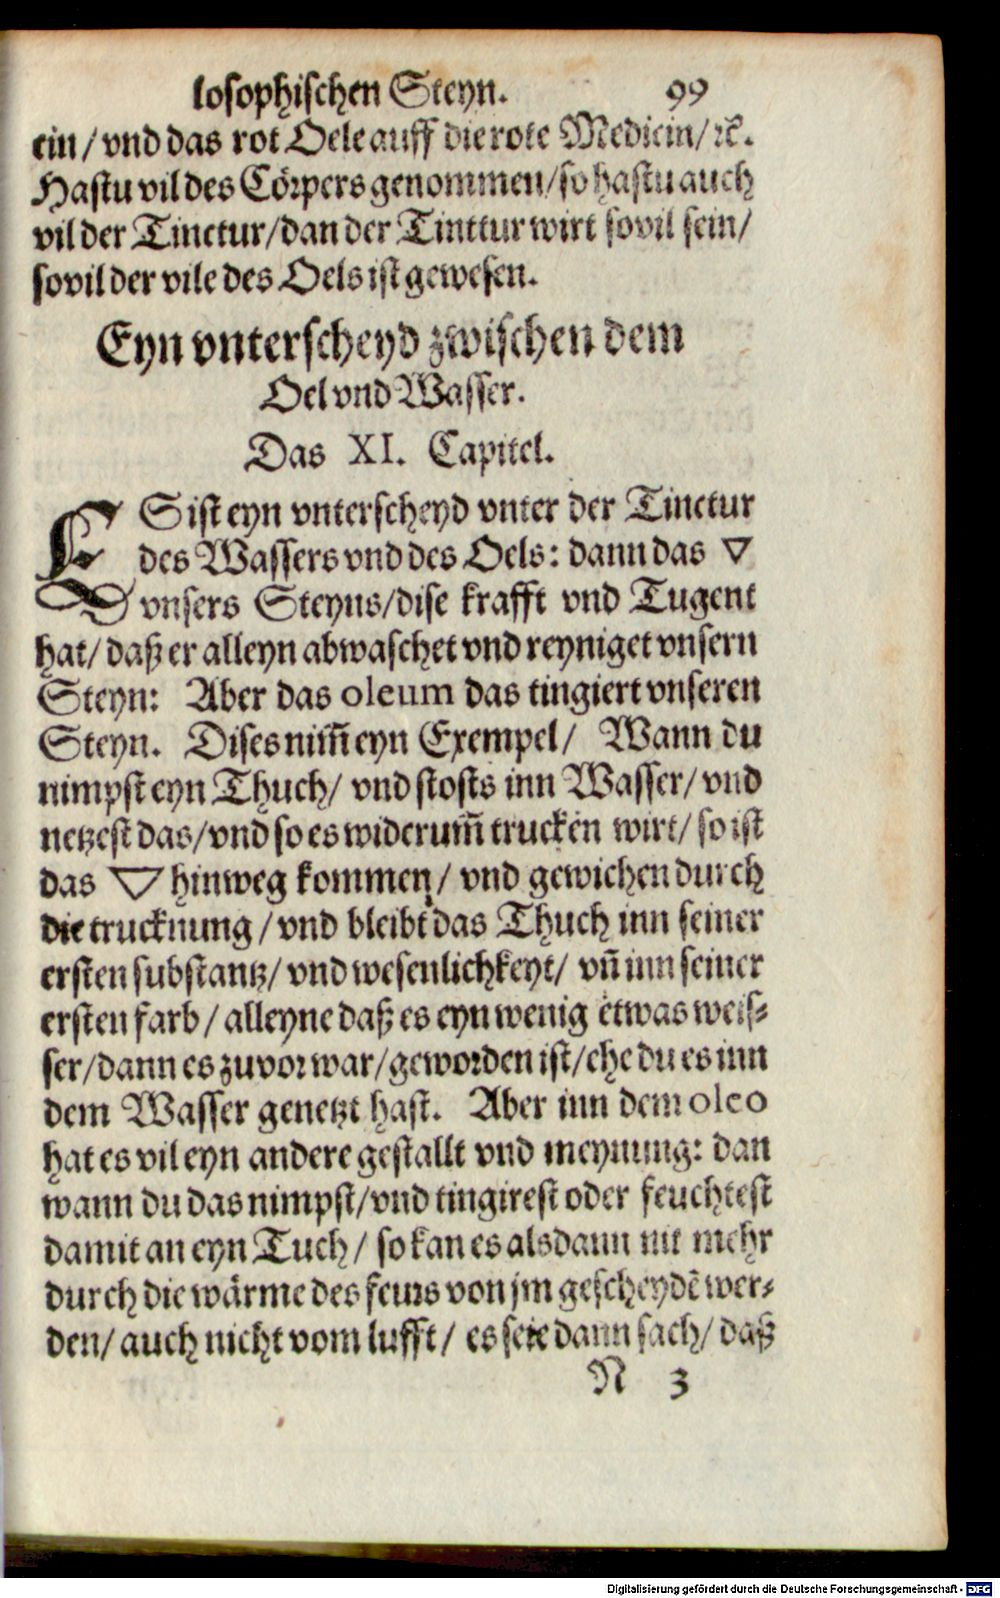 losophischen Steyn. 99
ein/ vnd das rot Oele auff die rote Medicin/ ꝛc.
Hastu vil des Cörpers genommen/ so hastu auch
vil der Tinctur/ dan der Tinttur wirt so vil sein/
so vil der vile des Oels ist gewesen.
Eyn vnterscheyd zwischen dem
Oel vnd Wasser.
Das XI. Capitel.
ES ist eyn vnterscheyd vnter der Tinctur
des Wassers vnd des Oels: dann das ▽
vnsers Steyns/ dise krafft vnd Tugent
hat/ daß er alleyn abwaschet vnd reyniget vnsern
Steyn: Aber das oleum das tingiert vnseren
Steyn. Dises nim̃ eyn Exempel/ Wann du
nimpst eyn Thuch/ vnd stosts inn Wasser/ vnd
netzest das/ vnd so es widerum̃ trucken wirt/ so ist
das ▽ hinweg kommen/ vnd gewichen durch
die trucknung/ vnd bleibt das Thuch inn seiner
ersten substantz/ vnd wesenlichkeyt/ vñ inn seiner
ersten farb/ alleyne daß es eyn wenig etwas weis-
ser/ dann es zuvor war/ geworden ist/ ehe du es inn
dem Wasser genetzt hast. Aber inn dem oleo
hat es vil eyn andere gestallt vnd meynung: dan
wann du das nimpst/ vnd tingirest oder feuchtest
damit an eyn Tuch/ so kan es alsdann nit mehr
durch die wärme des feurs von jm gescheydẽ wer-
den/ auch nicht vom lufft/ es seie dann sach/ daß
N 3
Digitalisierung gefördert durch die Deutsche Forschungsgemeinschaft - DFG